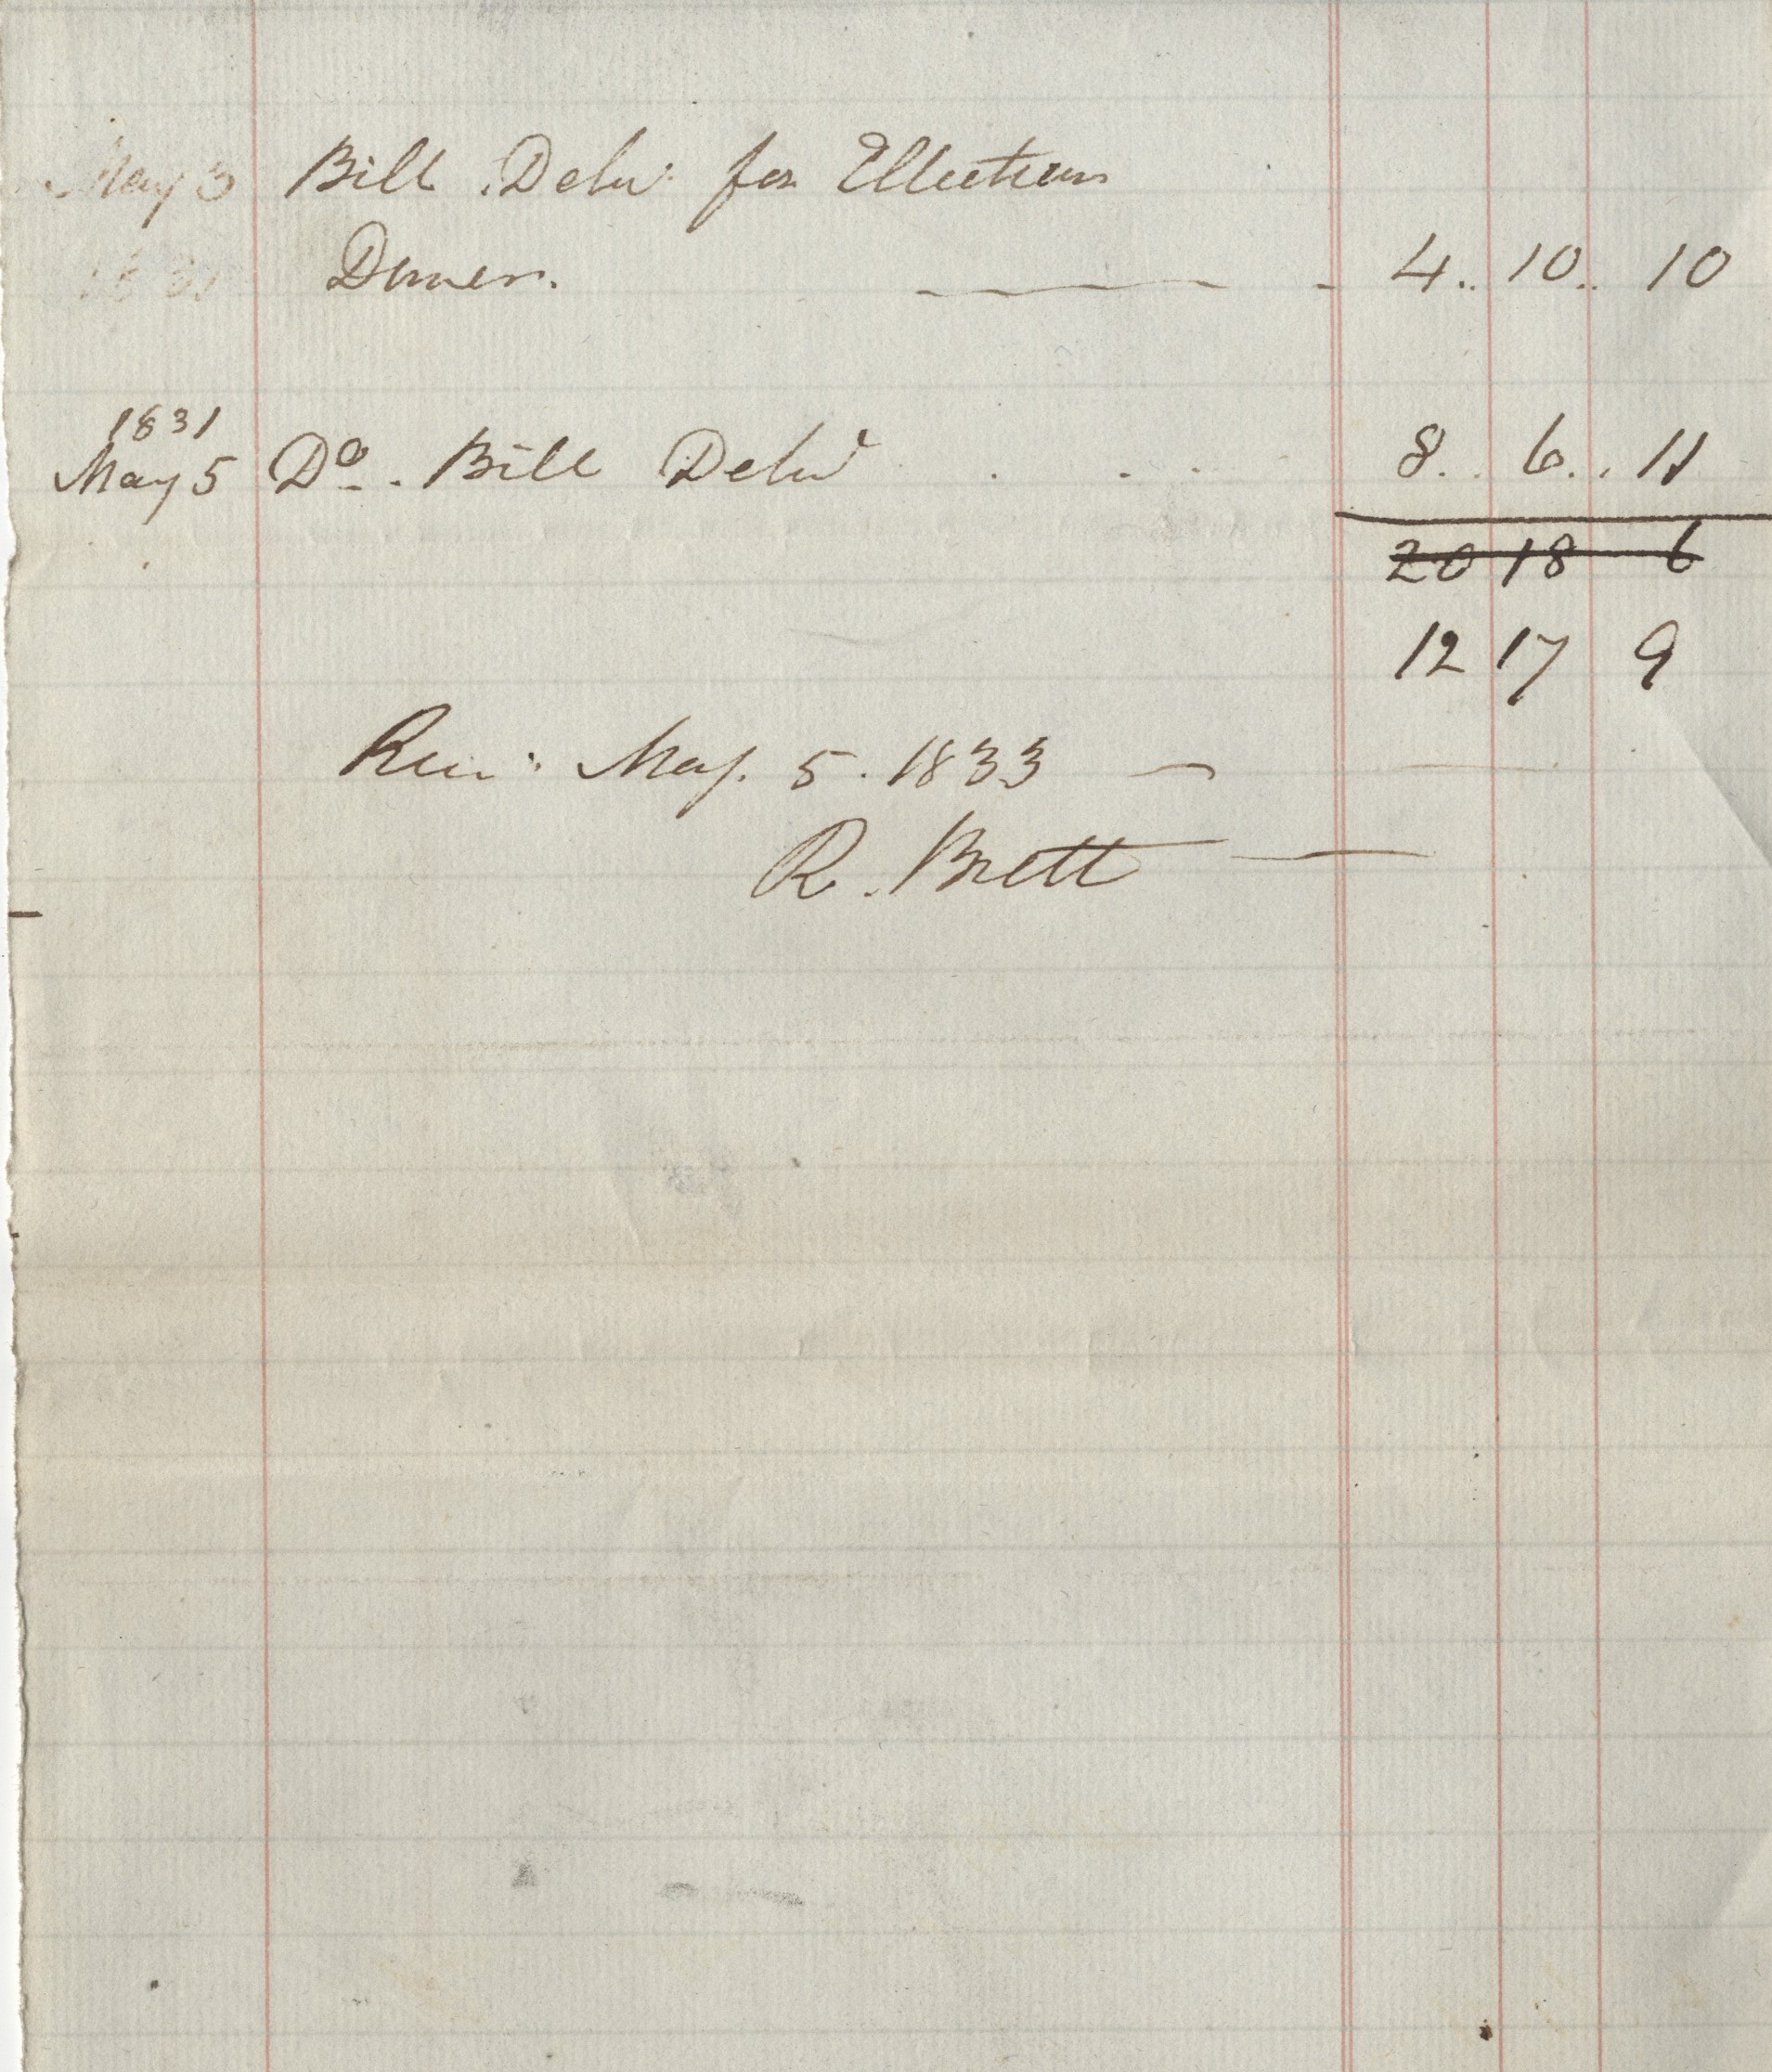 May 3 Bill Deliv'd for Ellection
1831 Dinner. 4.. 10.. 10
1831
May 5 Do. Bill Deliv'd 8.. 6.. 11
20 18 6
12 17 9
May. 5. 1833
R. Brett